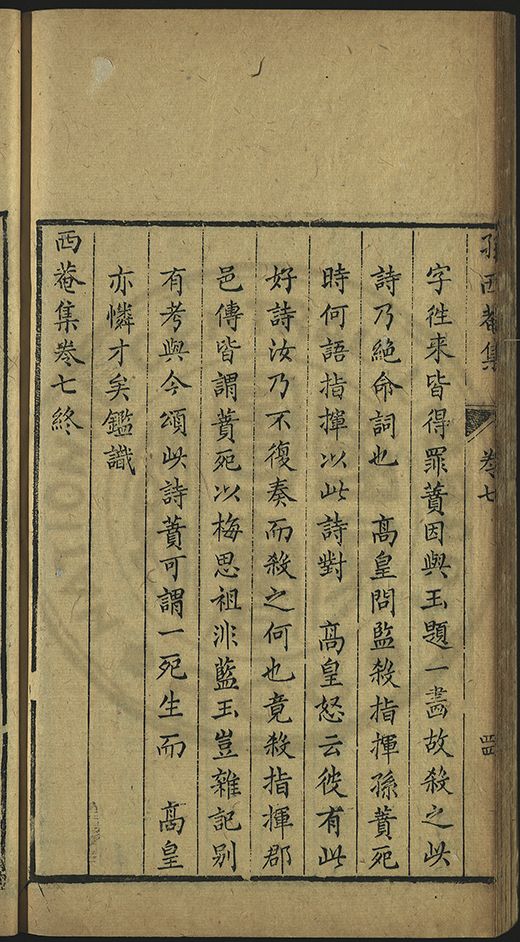 孫西菴集 卷七 四
字徃來皆得罪蕡因與玉題一畵故殺之此
詩乃絶命詞也 高皇問監殺指揮孫蕡死
時何語指揮以此詩對 高皇怒云彼有此
好詩汝乃不復奏而殺之何也竟殺指揮郡
邑傳皆謂蕡死以梅思祖非藍玉豈雜記别
有考與今頌此詩蕡可謂一死生而 高皇
亦憐才矣鑑識
西菴集卷七終